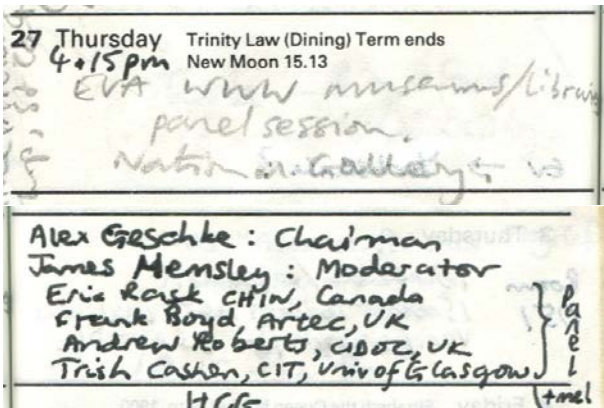 27 Thursday Trinity Law (Dining) Term ends
4.15pm New Moon 15.13
EVA WWW museums/libraries
panel session,
National Gallery
Alex Geschke: Chairman
James Hemsley: Moderator
Eric Rask CHIN, Canada
Frank Boyd, Artec, UK
Andrew Roberts, CIDOC, UK
Trish Cashen, CIT, Univ of Glasgow
Panel
+me!